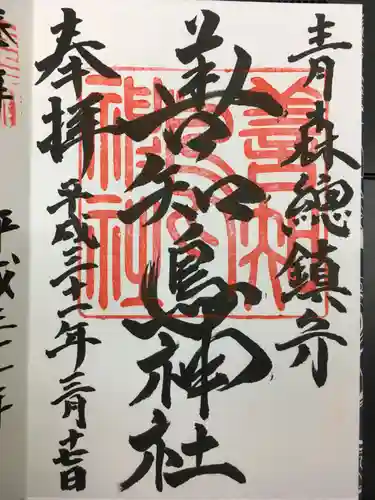 青森總鎮守
善知鳥神社
奉拝
平成三十一年二月十七日
善知鳥神社
奉拝
平成三十一年